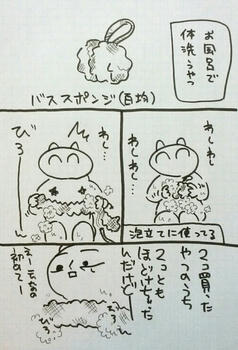 お風呂で
体洗うやつ
バススポンジ(百均)
わしわし
わしわし…
泡立てに使ってる
わし…
わし…
びろ〜
2コ買った
やつのうち
2コとも
ほどけるた
んだけど
え…こんなの
初めてー
びろ〜